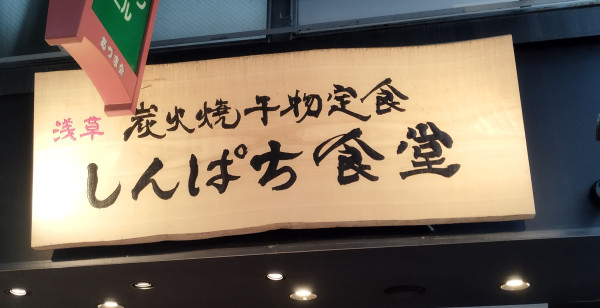 浅草 炭火焼干物定食
しんぱち食堂